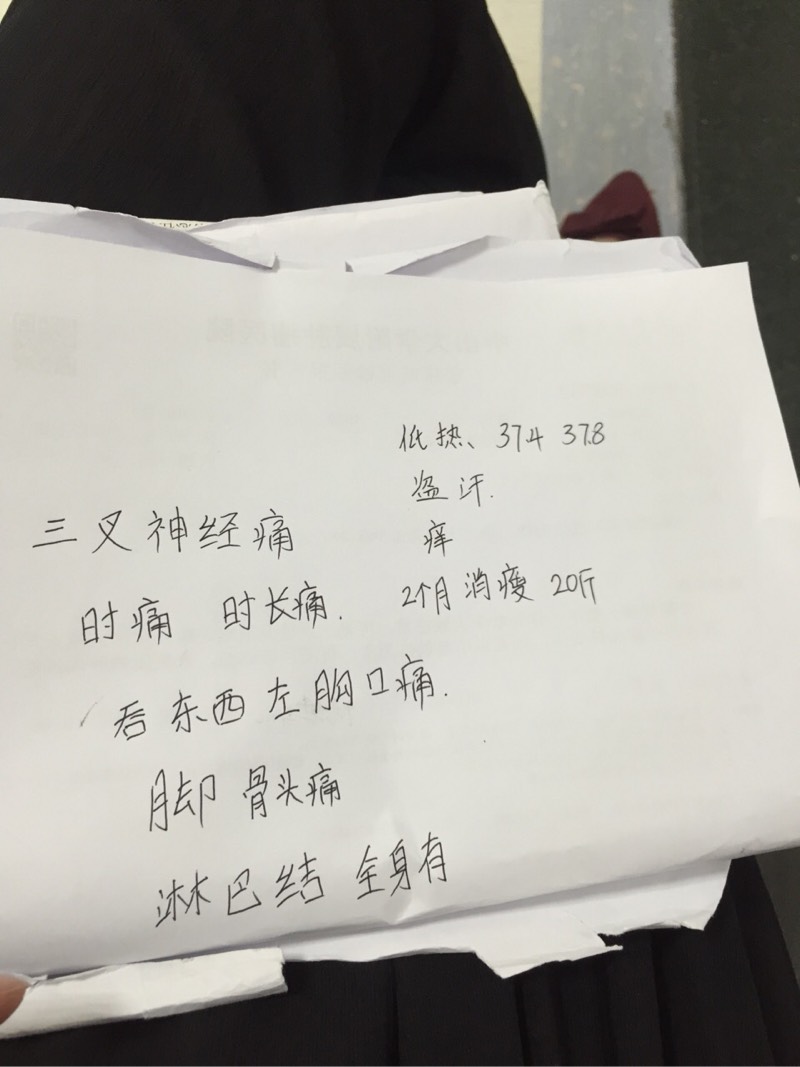 低热、37.4 37.8
盗汗.
痒
2个月消瘦 20斤
三叉神经痛
时痛 时长痛.
看东西左胸口痛.
脚 骨头痛
淋巴结 全身有